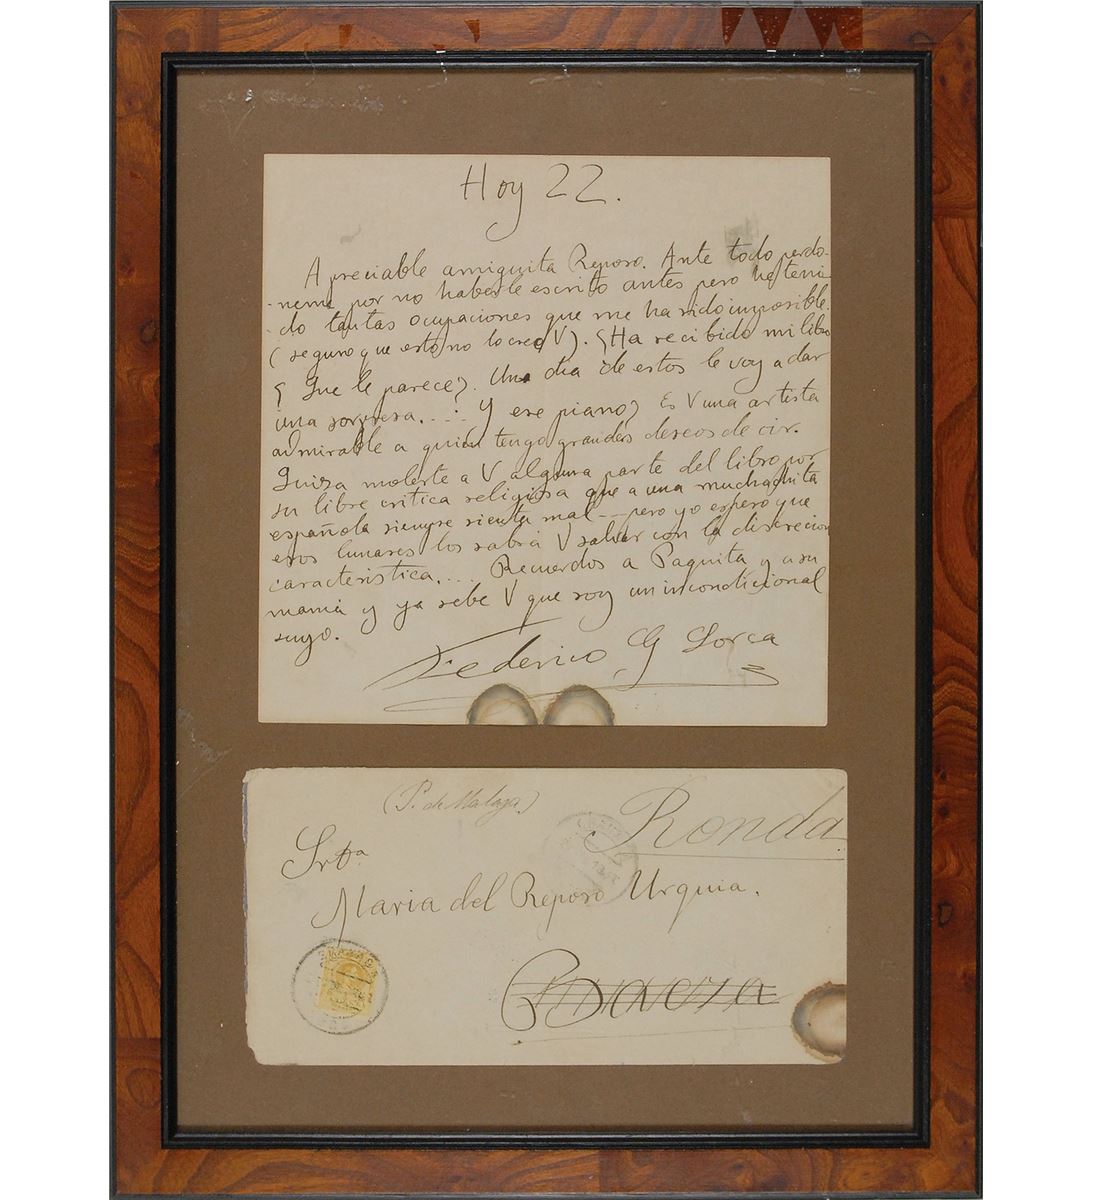 Hoy 22.
Apreciable amiguita Reposo. Ante todo perdo-
neme por no haberle escrito antes pero he teni-
do tantas ocupaciones que me ha sido imposible.
(seguro que esto no lo cree V). ¿Ha recibido mi libro
¿Que le parece? Un dia de estos le voy a dar
una sorpresa..... Y ese piano? Es V una artista
admirable a quién tengo grandes deseos de oir.
Quiza moleste a V alguna parte del libro por
su libre critica religiosa que a una muchachita
española siempre sienta mal... pero yo espero que
esos lunares los sabrá V salvar con la discreción
caracteristica.... Recuerdos a Paquita y a su
mamá y ya sebe V que soy un incondicional
suyo.
Federico G Lorca
(P. de Malaga)
Ronda
Srta
Maria del Reposo Urquia.
GRANADA
Baeza